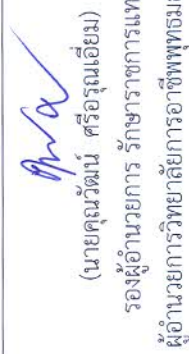 (นายคุณวัฒน์ ศรีอรุณเอี่ยม)
รองผู้อำนวยการ รักษาราชการแท
ผู้อำนวยการวิทยาลัยการอาชีพพุทธมณ